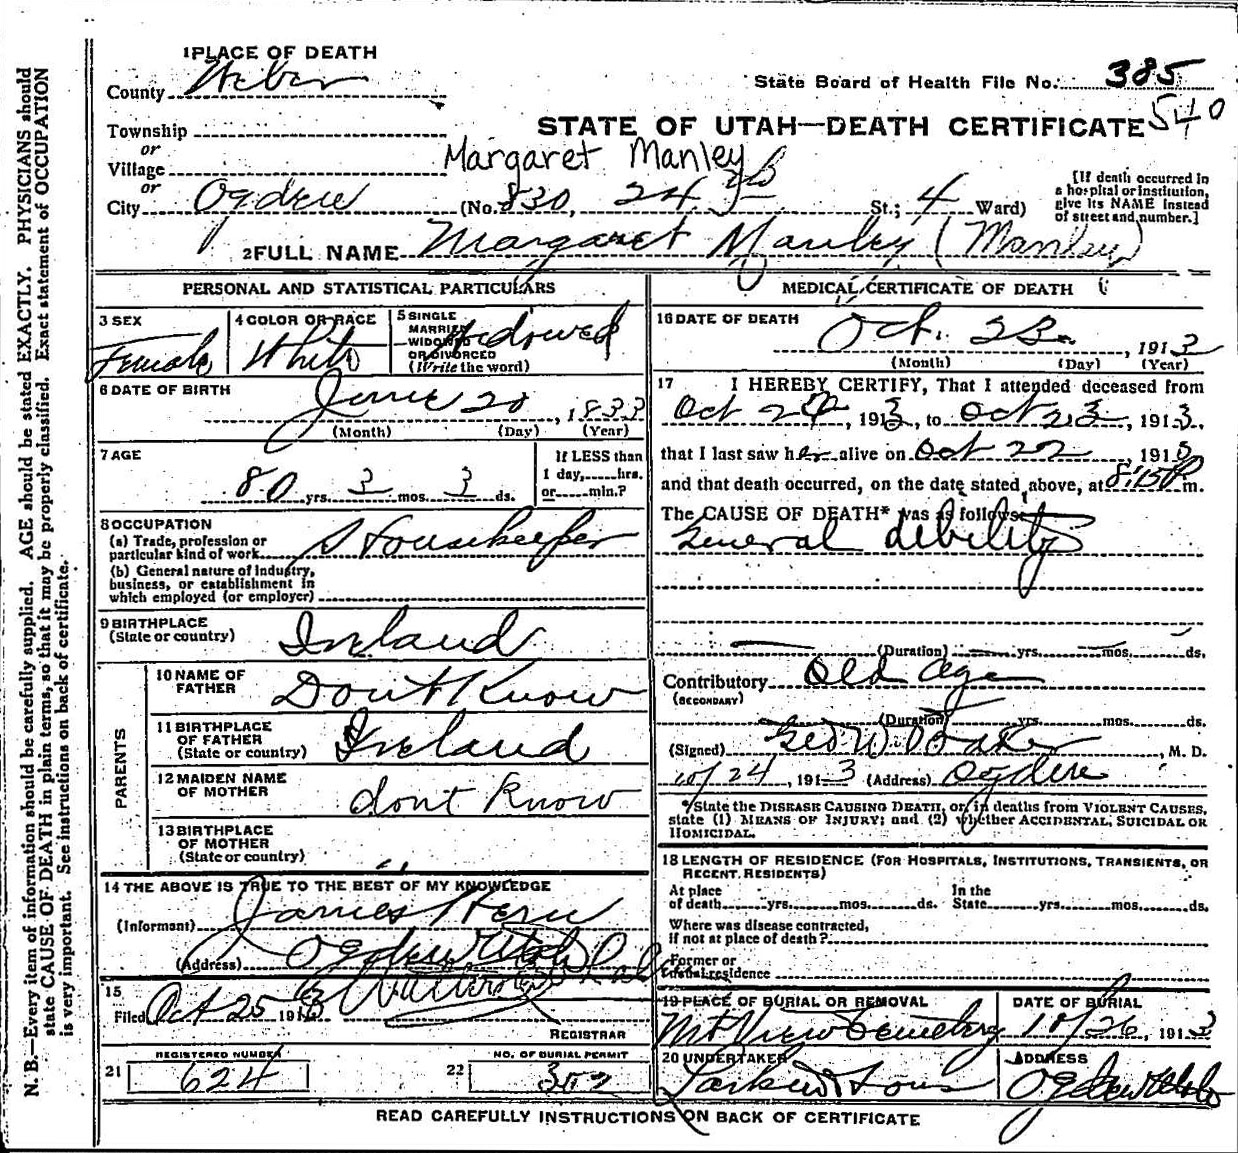 1 PLACE OF DEATH
County Weber
State Board of Health File No. 385
540
Township
or
STATE OF UTAH—DEATH CERTIFICATE
Village
Margaret Manley
or
City Ogden (No. 830, 24 St.; 4 Ward)
[If death occurred in a hospital or institution, give its NAME instead of street and number.]
2 FULL NAME Margaret Manley (Manley)
PERSONAL AND STATISTICAL PARTICULARS
3 SEX
Female
4 COLOR OR RACE
White
5 SINGLE
MARRIED
WIDOWED
OR DIVORCED
(Write the word)
Widowed
6 DATE OF BIRTH
June 20, 1833
(Month) (Day) (Year)
7 AGE
80 yrs. 3 mos. 3 ds.
If LESS than
1 day,......hrs.
or......min.?
8 OCCUPATION
(a) Trade, profession or
particular kind of work Housekeeper
(b) General nature of industry,
business, or establishment in
which employed (or employer)
9 BIRTHPLACE
(State or country) Ireland
PARENTS
10 NAME OF
FATHER Dont Know
11 BIRTHPLACE
OF FATHER
(State or country) Ireland
12 MAIDEN NAME
OF MOTHER dont Know
13 BIRTHPLACE
OF MOTHER
(State or country)
14 THE ABOVE IS TRUE TO THE BEST OF MY KNOWLEDGE
(Informant) James
(Address) Ogden Utah
15
Filed Oct 25 1913
REGISTRAR
21 REGISTERED NUMBER
624
22 NO. OF BURIAL PERMIT
352
MEDICAL CERTIFICATE OF DEATH
16 DATE OF DEATH
Oct. 23, 1913
(Month) (Day) (Year)
17 I HEREBY CERTIFY, That I attended deceased from
Oct, 1913, to Oct 23, 1913.
that I last saw her alive on Oct 22, 191
and that death occurred, on the date stated above, at 8:15 P m.
The CAUSE OF DEATH* was as follows:
General debility
(Duration) yrs. mos. ds.
Contributory Old age
(SECONDARY)
(Duration) yrs. mos. ds.
(Signed) Geo W. Baker, M. D.
10/24, 1913 (Address) Ogden
*State the DISEASE CAUSING DEATH, or, in deaths from VIOLENT CAUSES,
state (1) MEANS OF INJURY; and (2) whether ACCIDENTAL, SUICIDAL OR
HOMICIDAL.
18 LENGTH OF RESIDENCE (FOR HOSPITALS, INSTITUTIONS, TRANSIENTS, OR
RECENT RESIDENTS)
At place
of death......yrs......mos......ds.
In the
State......yrs......mos......ds.
Where was disease contracted,
if not at place of death?
Former or
usual residence
19 PLACE OF BURIAL OR REMOVAL
Mt View Cemetery
DATE OF BURIAL
10/26, 1913
20 UNDERTAKER
Larkin & Sons
ADDRESS
Ogden Utah
READ CAREFULLY INSTRUCTIONS ON BACK OF CERTIFICATE
N. B.—Every item of information should be carefully supplied. AGE should be stated EXACTLY. PHYSICIANS should
state CAUSE OF DEATH in plain terms, so that it may be properly classified. Exact statement of OCCUPATION
is very important. See instructions on back of certificate.